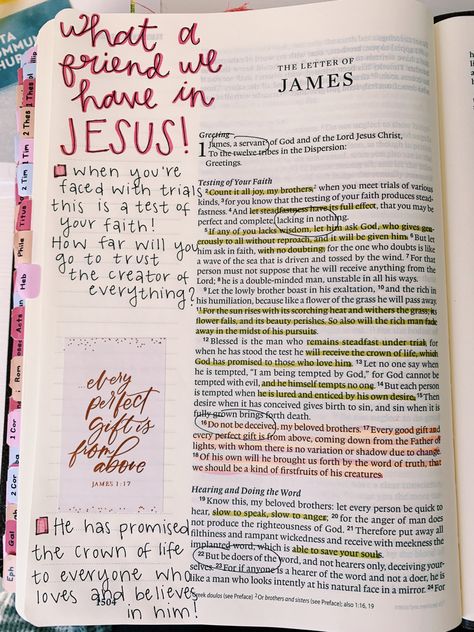 What a
friend we
have in
JESUS!
when you're
faced with trials
this is a test of
your faith!
How far will you
go to trust
the creator of
everything?
every
perfect
gift is
from
above
JAMES 1:17
He has promised
the crown of life
to everyone who
loves and believes
in him!
1504
THE LETTER OF
JAMES
Greeting
1 James, a servant of God and of the Lord Jesus Christ,
To the twelve tribes in the Dispersion:
Greetings.
Testing of Your Faith
2 Count it all joy, my brothers,2 when you meet trials of various
kinds, 3 for you know that the testing of your faith produces stead-
fastness. 4 And let steadfastness have its full effect, that you may be
perfect and complete, lacking in nothing.
5 If any of you lacks wisdom, let him ask God, who gives gen-
erously to all without reproach, and it will be given him. 6 But let
him ask in faith, with no doubting, for the one who doubts is like
a wave of the sea that is driven and tossed by the wind. 7 For that
person must not suppose that he will receive anything from the
Lord; 8 he is a double-minded man, unstable in all his ways.
9 Let the lowly brother boast in his exaltation, 10 and the rich in
his humiliation, because like a flower of the grass he will pass away.
11 For the sun rises with its scorching heat and withers the grass; its
flower falls, and its beauty perishes. So also will the rich man fade
away in the midst of his pursuits.
12 Blessed is the man who remains steadfast under trial, for
when he has stood the test he will receive the crown of life, which
God has promised to those who love him. 13 Let no one say when
he is tempted, "I am being tempted by God," for God cannot be
tempted with evil, and he himself tempts no one. 14 But each person
is tempted when he is lured and enticed by his own desire. 15 Then
desire when it has conceived gives birth to sin, and sin when it is
fully grown brings forth death.
16 Do not be deceived, my beloved brothers. 17 Every good gift and
every perfect gift is from above, coming down from the Father of
lights, with whom there is no variation or shadow due to change.
18 Of his own will he brought us forth by the word of truth, that
we should be a kind of firstfruits of his creatures.
Hearing and Doing the Word
19 Know this, my beloved brothers: let every person be quick to
hear, slow to speak, slow to anger; 20 for the anger of man does
not produce the righteousness of God. 21 Therefore put away all
filthiness and rampant wickedness and receive with meekness the
implanted word, which is able to save your souls.
22 But be doers of the word, and not hearers only, deceiving your-
selves. 23 For if anyone is a hearer of the word and not a doer, he is
like a man who looks intently at his natural face in a mirror. 24 For
Greek doulos (see Preface) 2 Or brothers and sisters (see Preface); also 1:16, 19
2 Thes
1 Tim
2 Tim
Titus
Phile
Heb
Acts
Rom
1 Cor
2 Cor
Gal
Eph